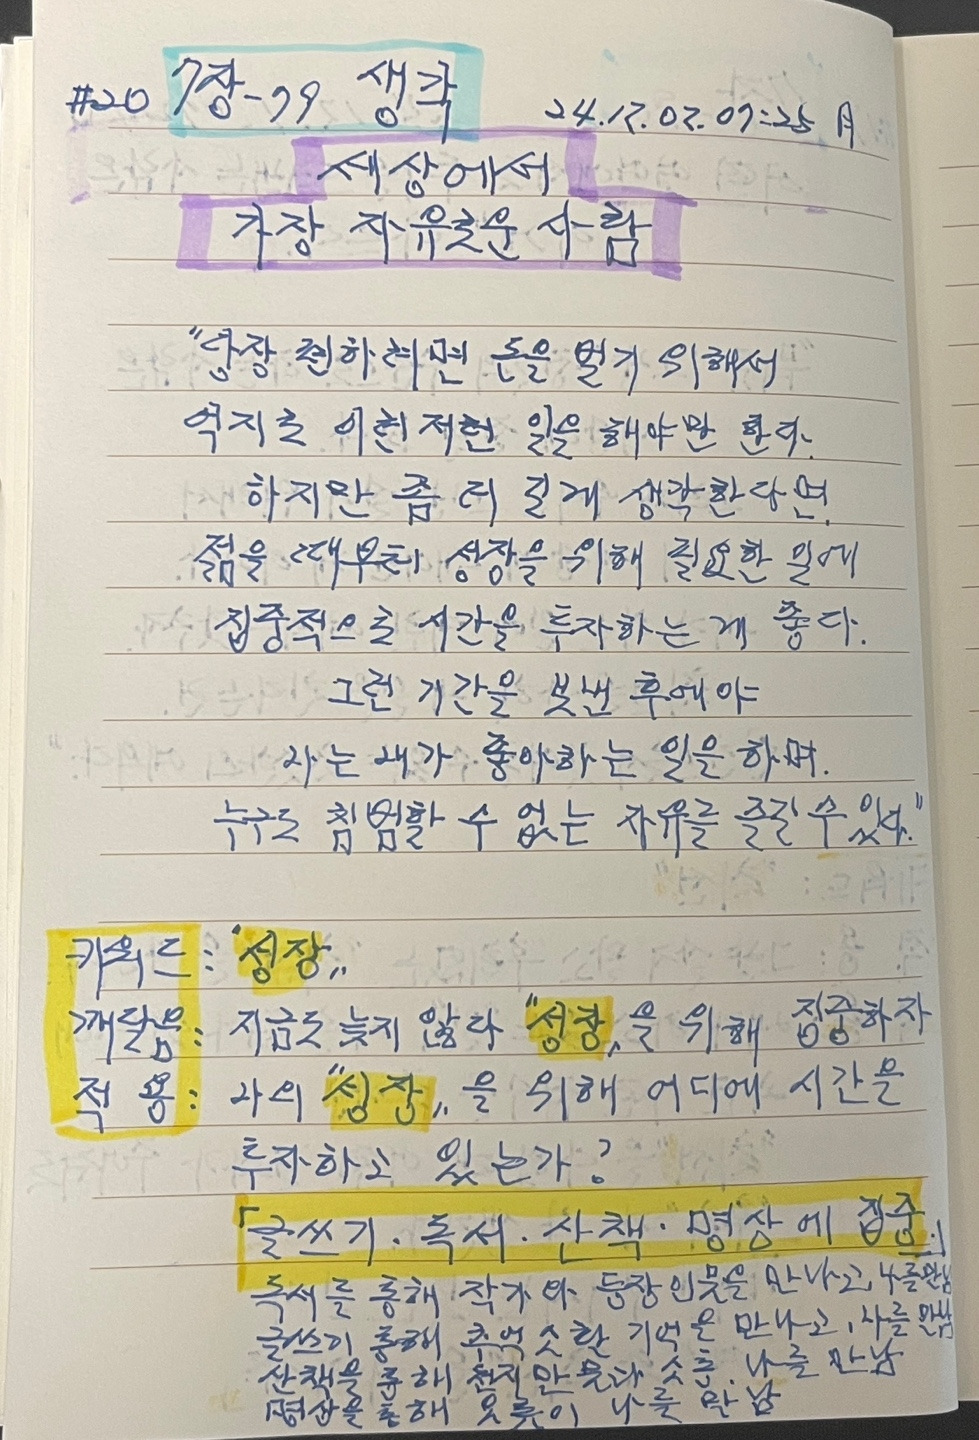 #20 7장-79 생각 24.12.02.07:25 月
세상에서
가장 자유로운 사람
"당장 편하려면 돈을 벌기 위해서
억지로 이런저런 일을 해야만 한다.
하지만 좀 더 길게 생각한다면,
젊을 때부터 성장을 위해 필요한 일에
집중적으로 시간을 투자하는 게 좋다.
그런 기간을 보낸 후에야
나는 내가 좋아하는 일을 하며,
누구도 침범할 수 없는 자유를 즐길 수 있다."
키워드 : "성장"
깨달음 : 지금도 늦지 않다 "성장"을 위해 집중하자
적 용 : 나의 "성장"을 위해 어디에 시간을
투자하고 있는가?
「글쓰기·독서·산책·명상에 집중」
독서를 통해 작가와 등장인물을 만나고, 나를 만남
글쓰기 통해 추억 속 기억을 만나고, 나를 만남
산책을 통해 천지만물과 소통, 나를 만남
명상을 통해 오롯이 나를 만남